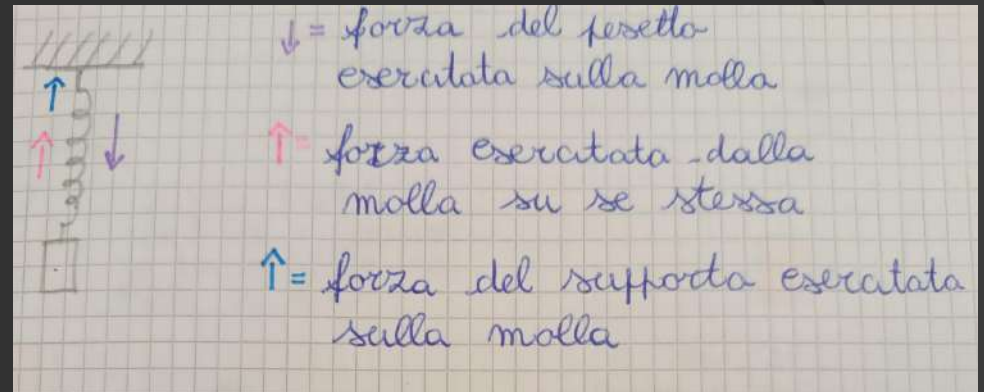 ↓ = forza del pesetto
esercitata sulla molla
↑ = forza esercitata dalla
molla su se stessa
↑ = forza del supporto esercitata
sulla molla